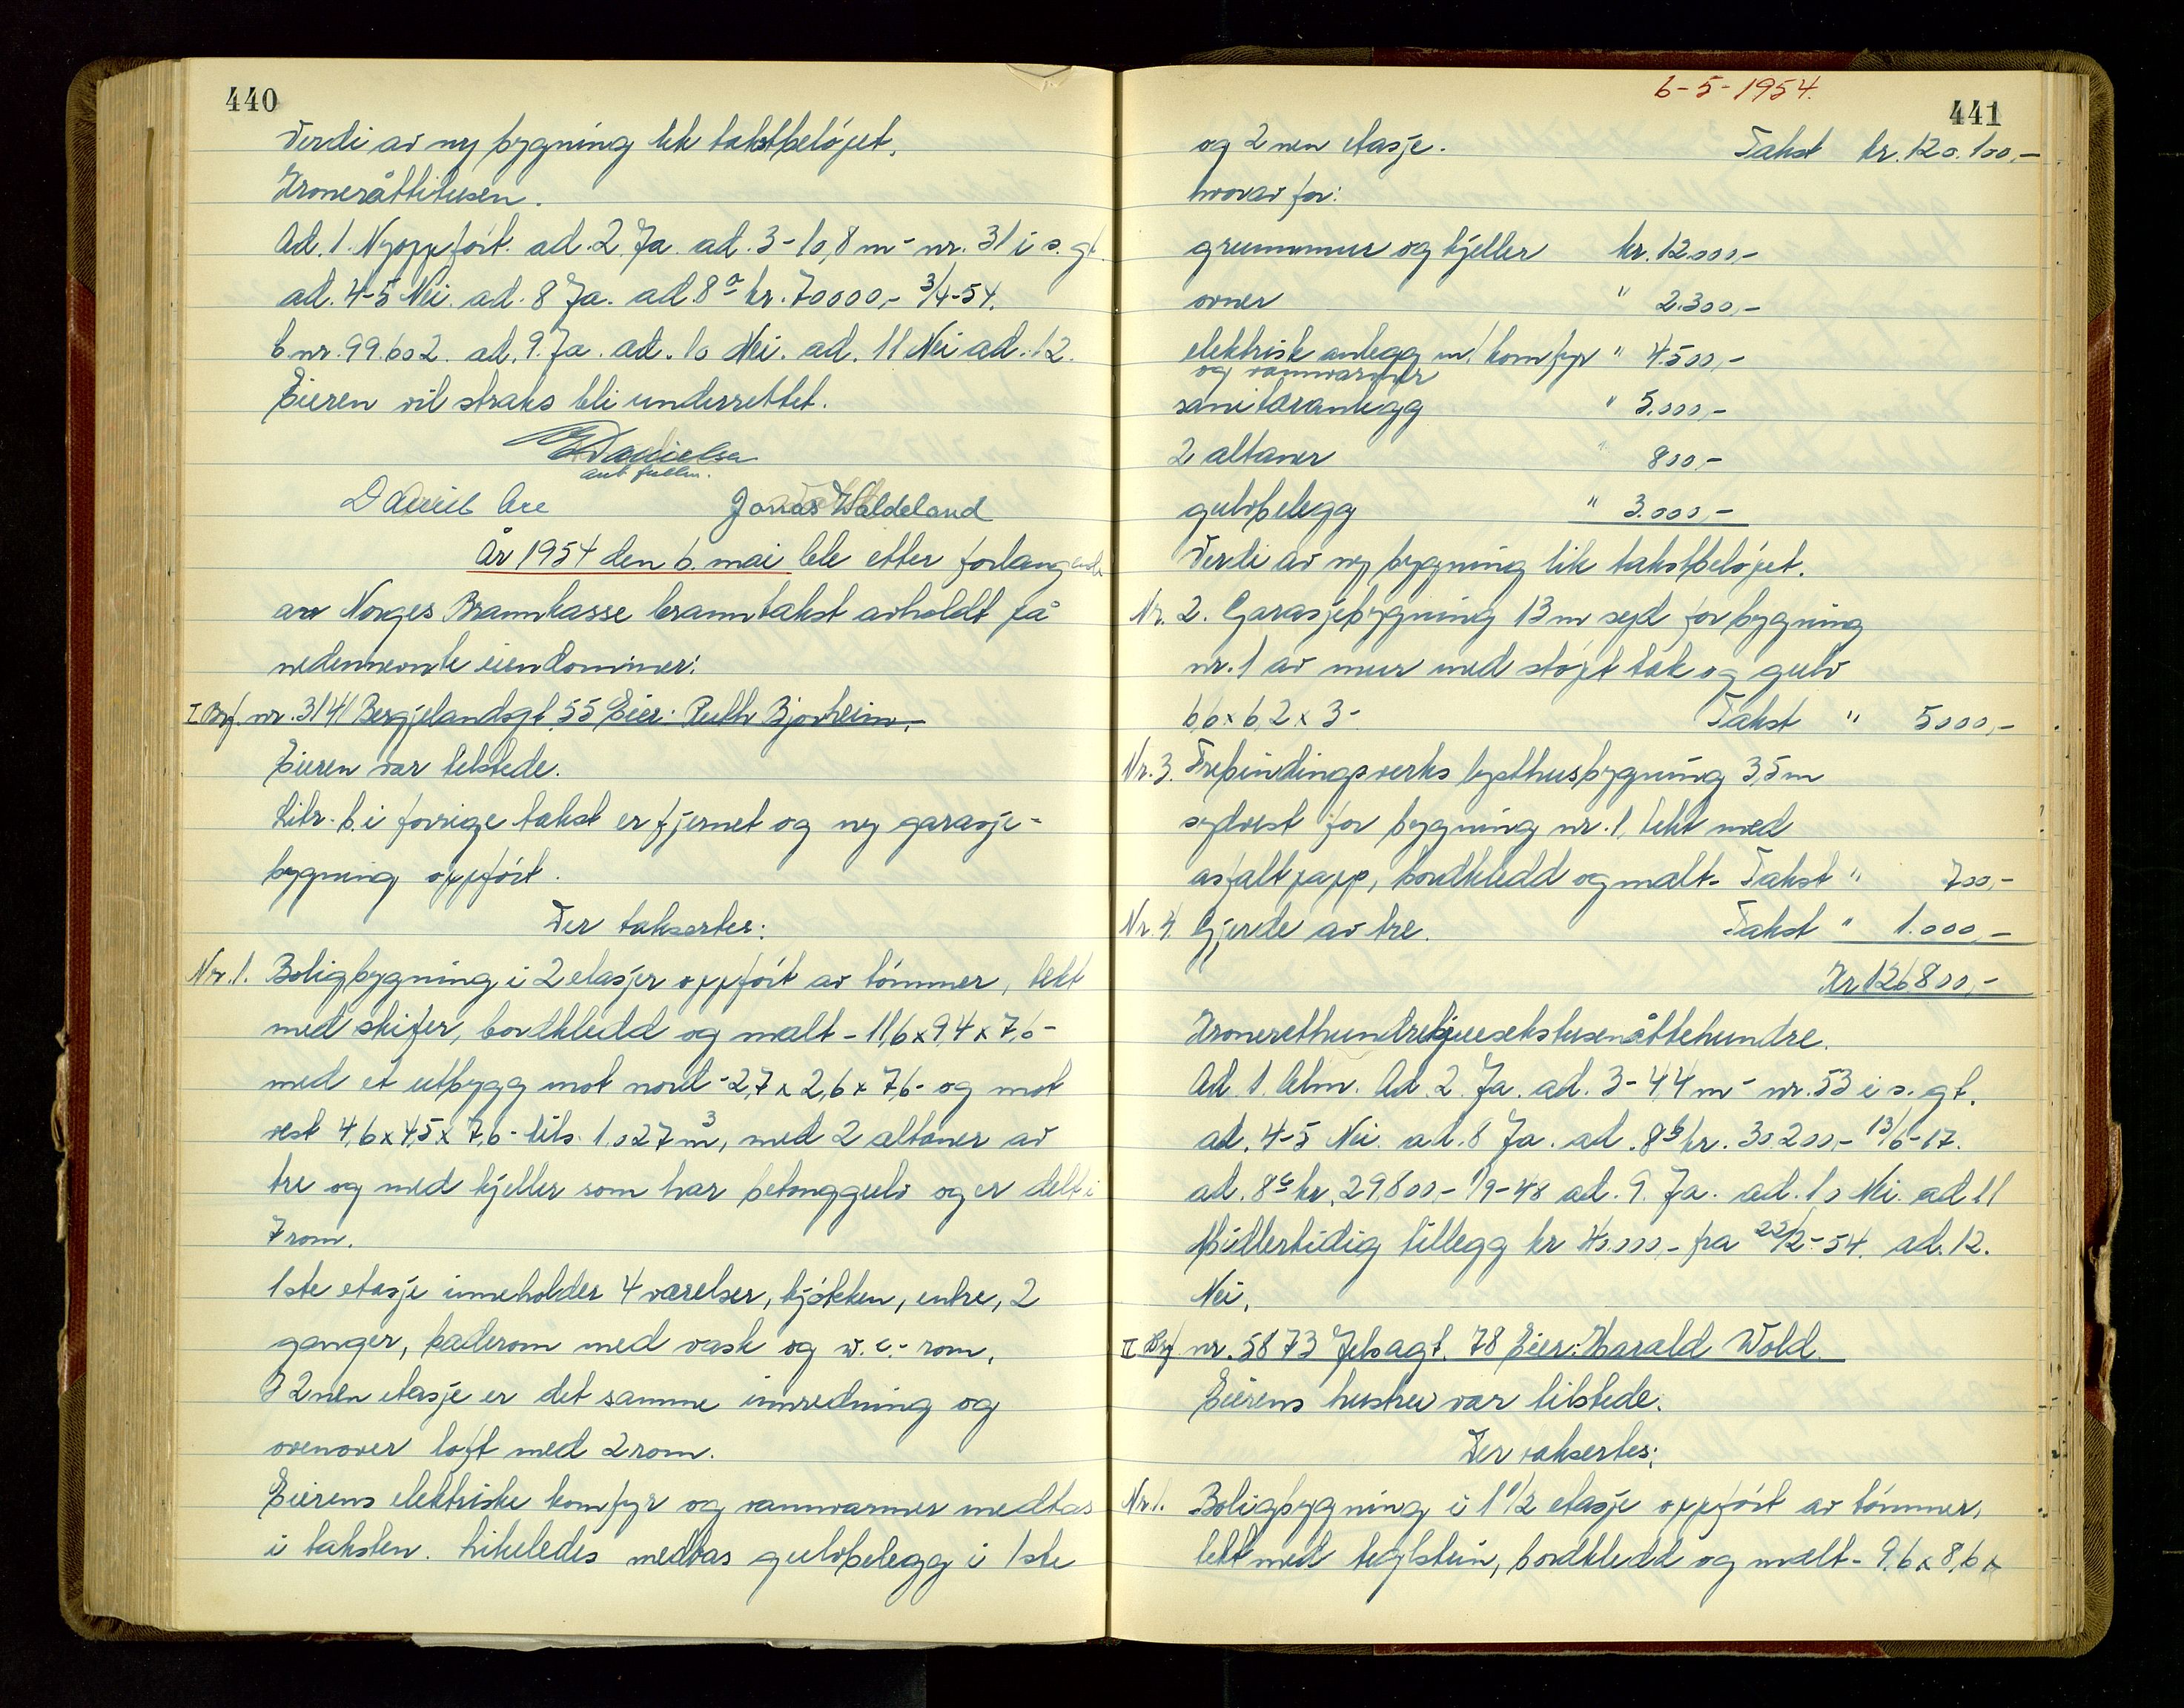 440
Verdi av ny bygning lik takstbeløpet.
Kroneråttitusen.
Ad. 1. Nyoppført. ad. 2. Ja. ad. 3 - 10,8 m - nr. 31 i s. gt.
ad. 4-5 Nei. ad. 8 Ja. ad 8a kr. 70000,- 3/4-54.
b nr. 99.602. ad. 9. Ja. ad. 10 Nei. ad. 11 Nei ad. 12.
Eieren vil straks bli underrettet.
E Danielsen
aut fullm.
Jonas Waldeland
År 1954 den 6. mai ble etter forlangende
av Norges Brannkasse branntakst avholdt på
nedennevnte eiendommer:
I. Brf. nr. 3141 Bergjelandsgt. 55 Eier: Ruth Bjorheim.
Eieren var tilstede.
Litr. b. i forrige takst er fjernet og ny garasje-
bygning oppført.
Der taksertes:
Nr. 1. Boligbygning i 2 etasjer oppført av tømmer, tekt
med skifer, bordkledd og malt - 11,6 x 9,4 x 7,6 -
med et utbygg mot nord - 2,7 x 2,6 x 7,6 - og mot
vest 4,6 x 4,5 x 7,6 - tils. 1.027 m3, med 2 altaner av
tre og med kjeller som har betonggulv og er delt i
7 rom.
1ste etasje inneholder 4 værelser, kjøkken, entre, 2
ganger, baderom med vask og w.c.- rom.
I 2nen etasje er det samme innredning og
ovenover loft med 2 rom.
Eierens elektriske komfyr og vannvarmer medtas
i taksten. Likeledes medtas gulvbelegg i 1ste
6-5-1954.
441
og 2nen etasje. Takst kr. 120.100,-
hvorav for:
grunnmur og kjeller kr. 12.000,-
ovner " 2.300,-
elektrisk anlegg m/ komfyr " 4.500,-
og vannvarmer
sanitæranlegg " 5.000,-
2 altaner " 800,-
gulvbelegg " 3.000,-
Verdi av ny bygning lik takstbeløpet.
Nr. 2. Garasjebygning 13 m syd for bygning
nr. 1 av mur med støpt tak og gulv
6,6 x 6,2 x 3 - Takst " 5000,-
Nr. 3. Trebindingsverks lysthusbygning 3,5 m
sydvest for bygning nr. 1, tekt med
asfaltpapp, bordkledd og malt. Takst " 700,-
Nr. 4. Gjerde av tre. Takst " 1.000,-
Kr. 126800,-
Kronerethundretjuesekstusenåttehundre.
Ad. 1. Alm. Ad. 2. Ja. ad. 3 - 4,4 m - nr. 53 i s. gt.
ad. 4-5 Nei. ad. 8 Ja. ad. 8b kr. 30.200,- 13/6-17.
ad. 8c kr. 29.800,- 1/9-48 ad. 9. Ja. ad. 10 Nei. ad 11
Midlertidig tillegg kr 40.000,- fra 22/2-54. ad. 12.
Nei.
II Brf. nr. 5873 Jelsagt. 78 Eier: Harald Wold.
Eierens hustru var tilstede.
Der taksertes:
Nr. 1. Boligbygning i 1 1/2 etasje oppført av tømmer,
tekt med teglstein, bordkledd og malt - 9,6 x 8,6 x